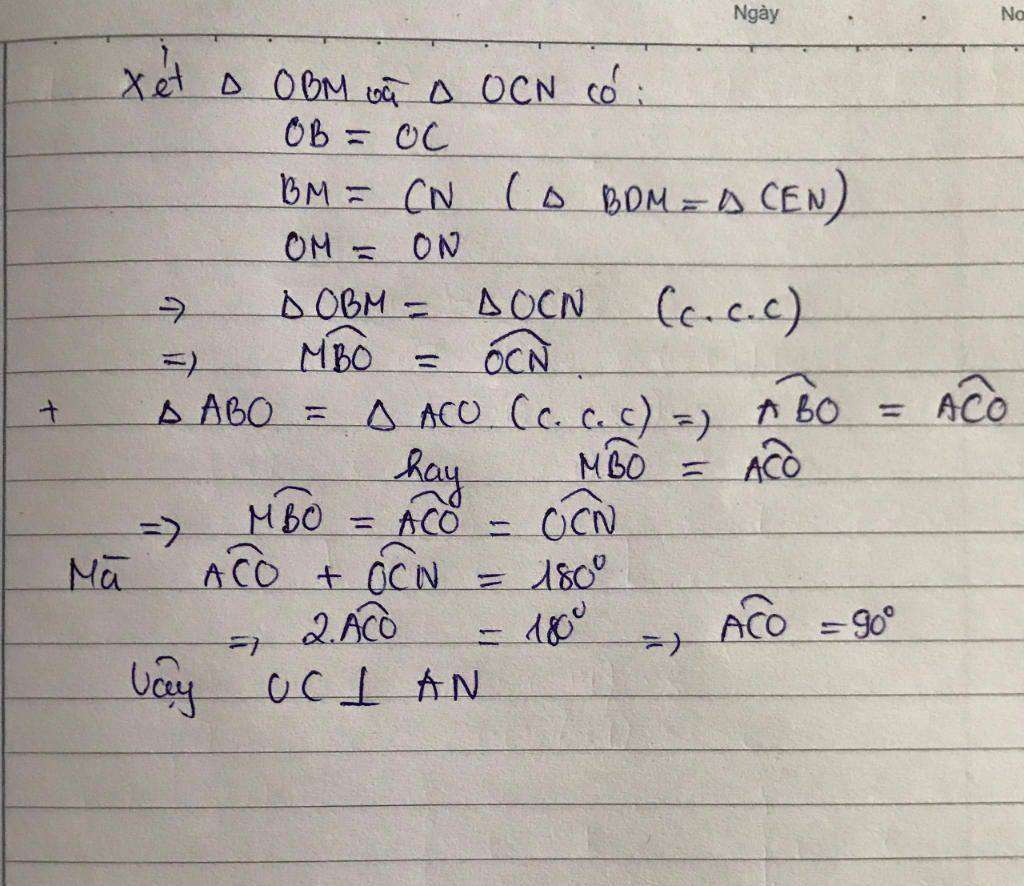 Ngày . . No
Xét Δ OBM và Δ OCN có :
OB = OC
BM = CN ( Δ BDM = Δ CEN )
OM = ON
=> Δ OBM = Δ OCN (c.c.c)
=> \widehat{MBO} = \widehat{OCN} .
+ Δ ABO = Δ ACO. (c.c.c) => \widehat{ABO} = \widehat{ACO}
hay \widehat{MBO} = \widehat{ACO}
=> \widehat{MBO} = \widehat{ACO} = \widehat{OCN}
Mà \widehat{ACO} + \widehat{OCN} = 180°
=> 2.\widehat{ACO} = 180° => \widehat{ACO} = 90°
Vậy OC ⊥ AN